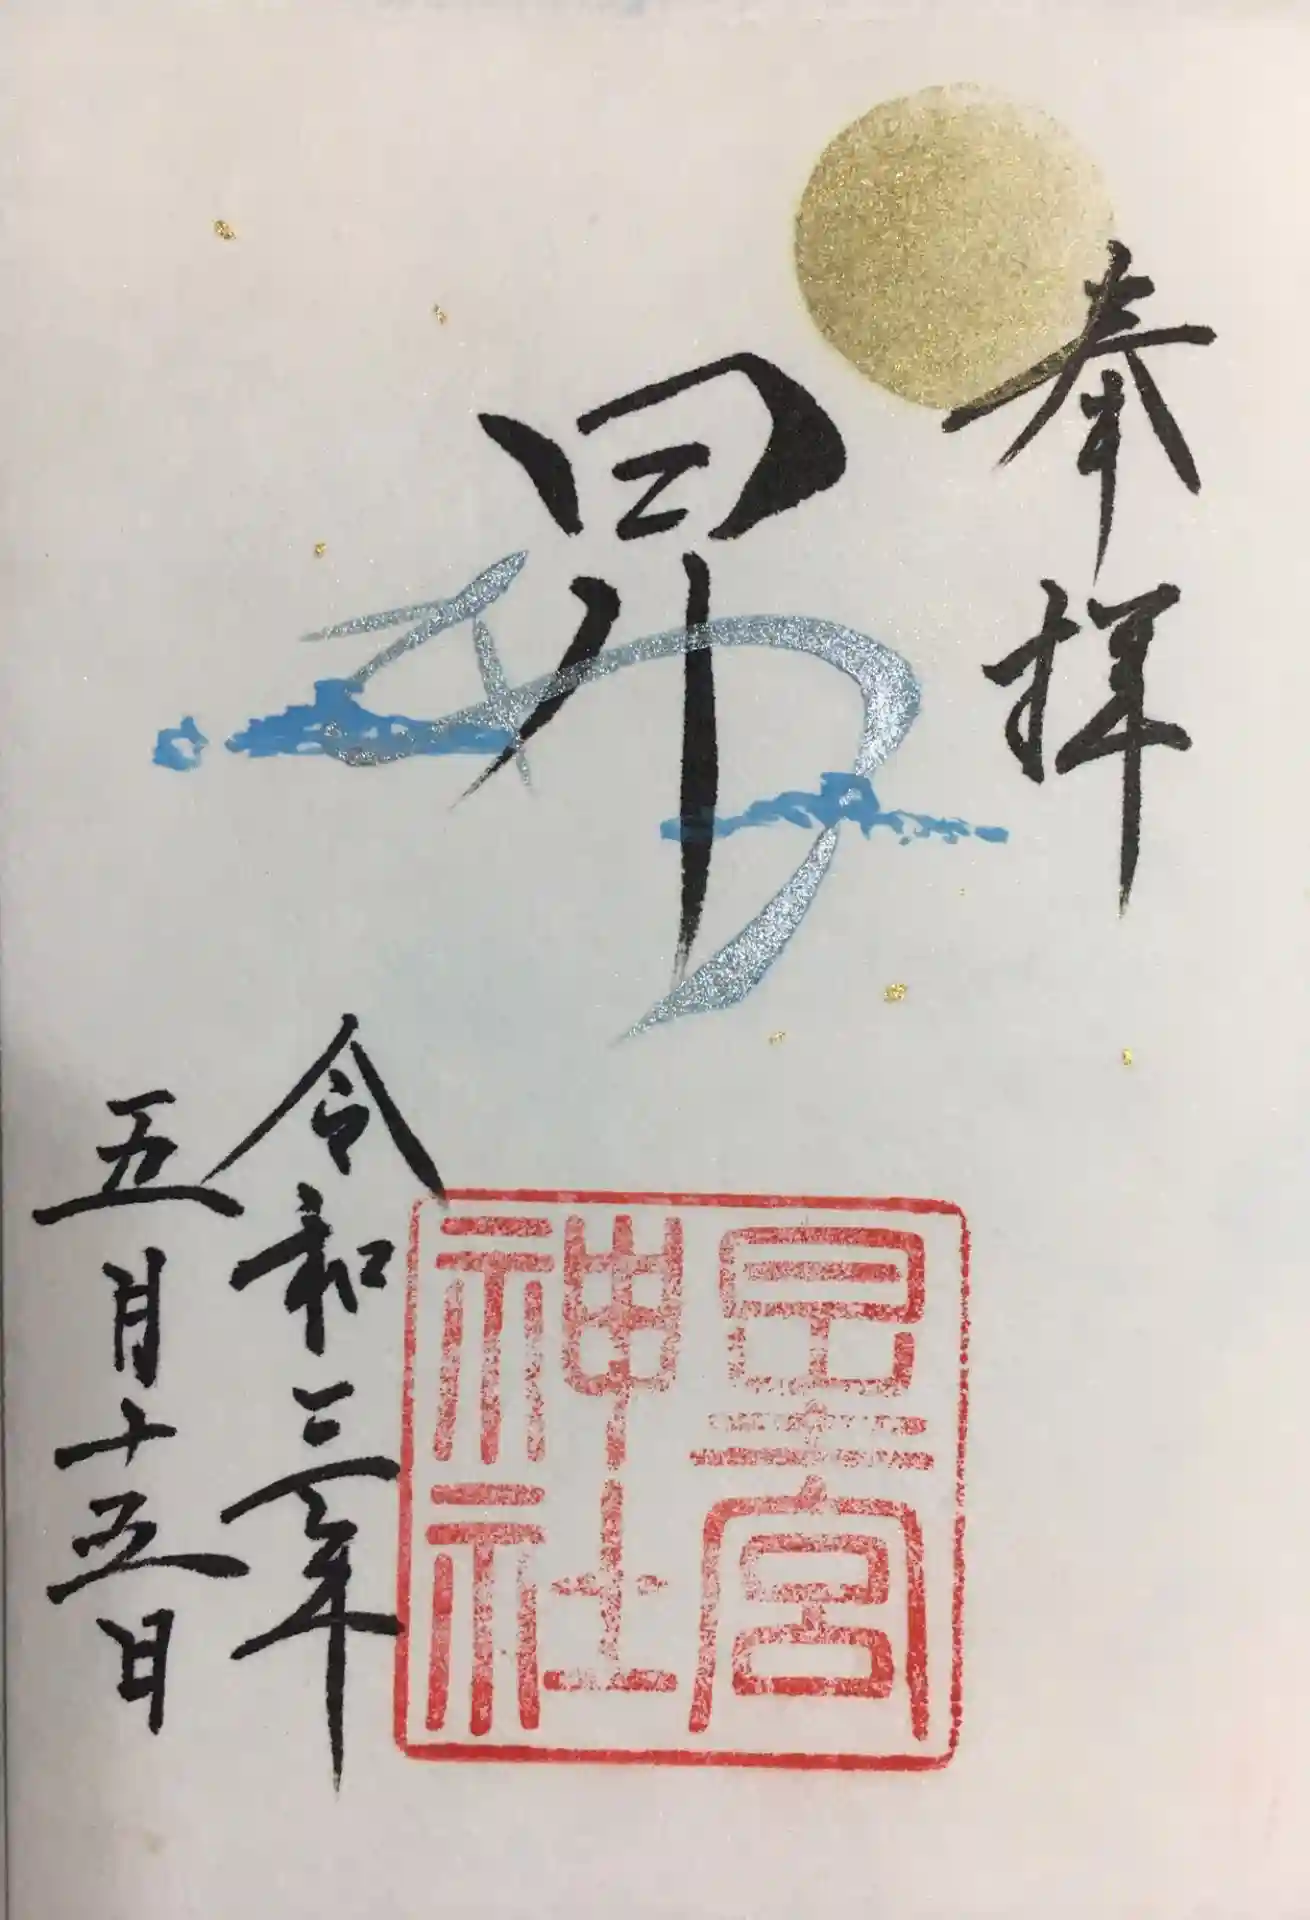 奉拝
昇
星宮
神社
令和三年
五月十五日